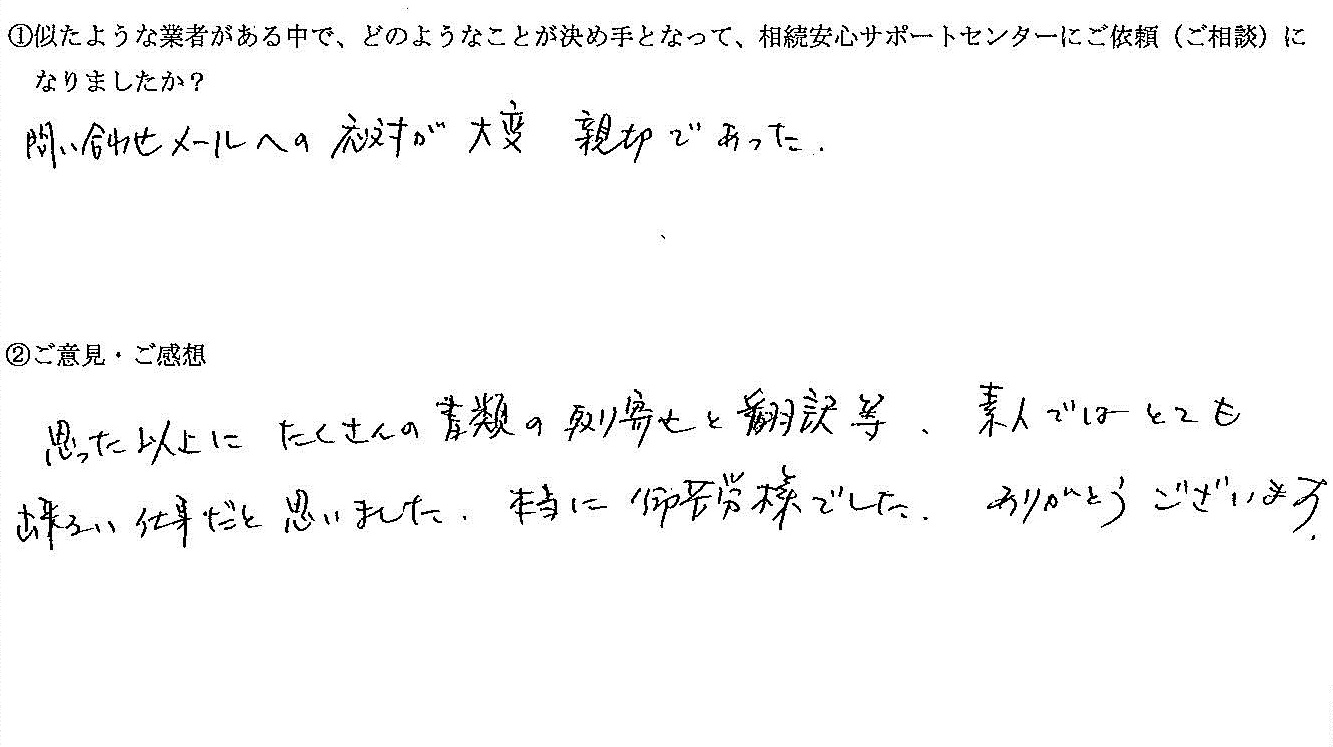 ①似たような業者がある中で、どのようなことが決め手となって、相続安心サポートセンターにご依頼（ご相談）に
なりましたか？
問い合わせメールへの応対が大変 親切であった.
②ご意見・ご感想
思った以上に たくさんの書類の取り寄せと翻訳等、素人ではとても
出来ない仕事だと思いました. 本当に御苦労様でした. ありがとうございます.